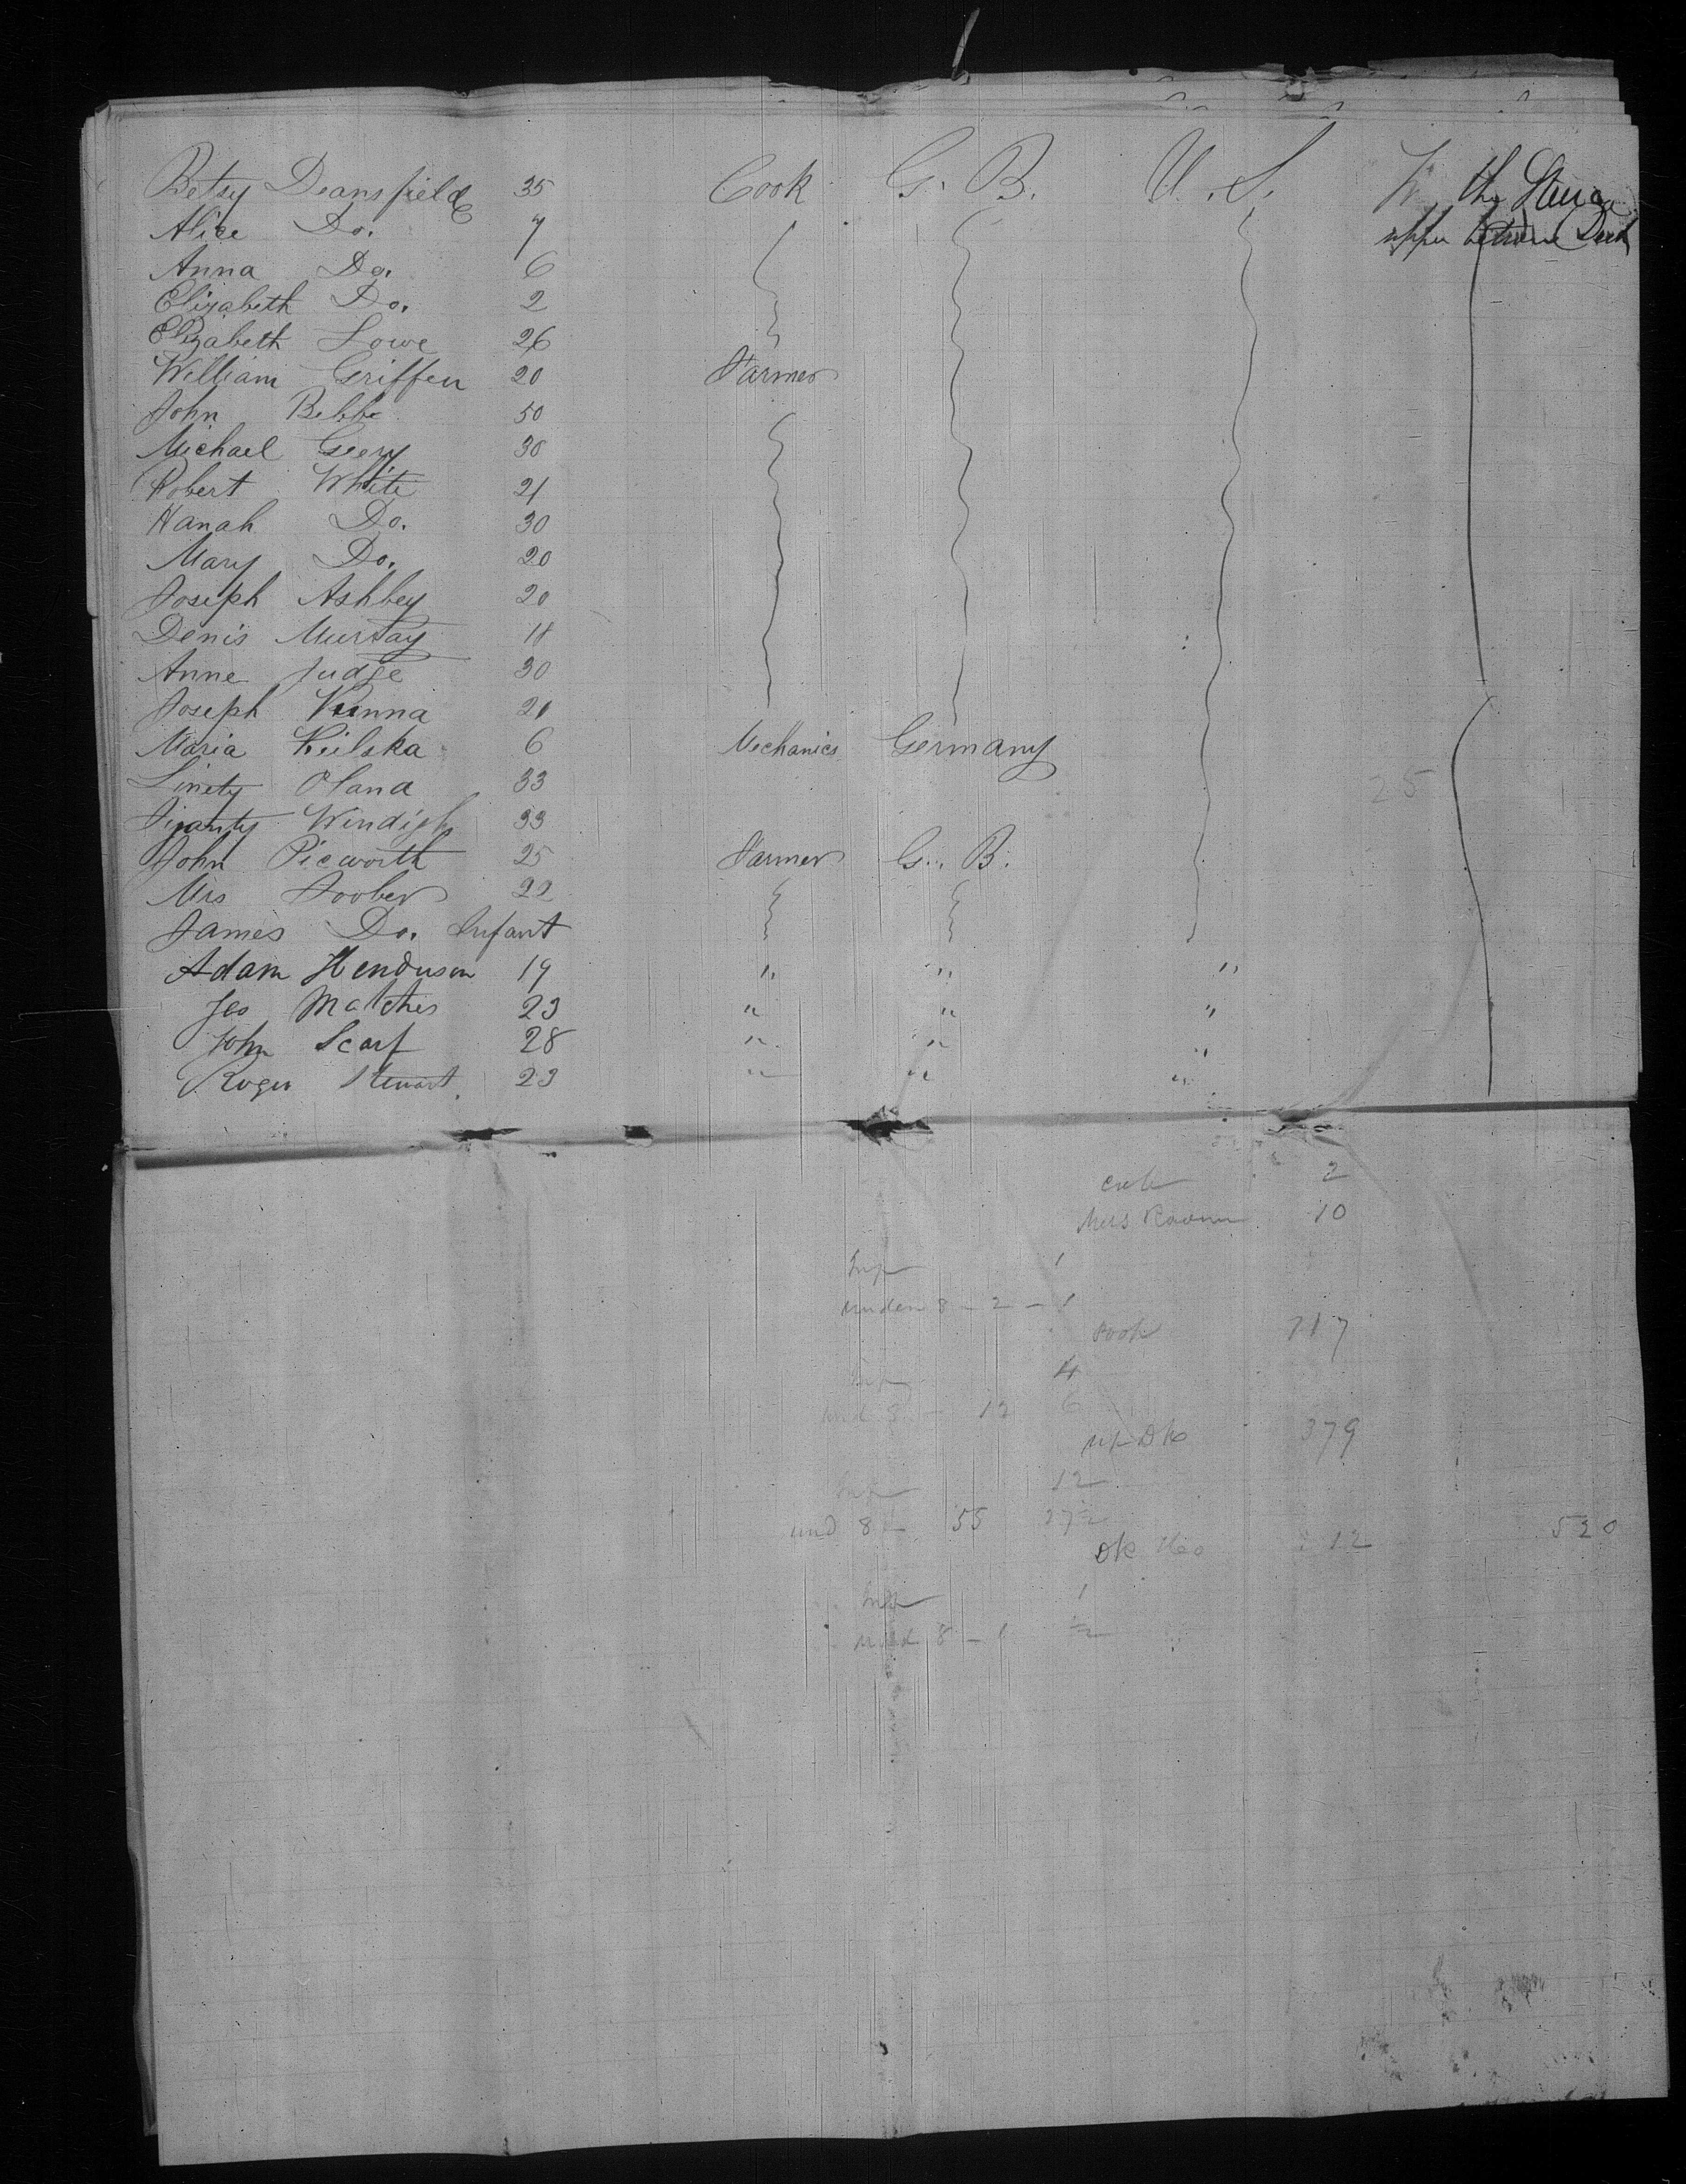 Betsy Deansfield 35 Cook G. B. U. S. the
Alice Do. 7 upper between Deck
Anna Do. 6
Elizabeth Do. 2
Elizabeth Lowe 26
William Griffen 20 Farmer
John Bebbe 50
Michael Geery 30
Robert White 21
Hanah Do. 30
Mary Do. 20
Joseph Ashbey 20
Denis Murray 18
Anne Judge 30
Joseph 21
Maria Keilska 6 Mechanics Germany
Linety Oland 33
Windigh 33 25
John Picworth 25 Farmer G. B.
Mrs Foober 22
James Do. Infant
Adam Henduson 19 " " "
Geo Mathes 23 " " "
John Scarf 28 " " "
Roger Stewart 23 " " "
2
Room 10
Inf 1
under 8 - 2 - 1
117
Inf 4
und 8 - 12 6
up Dk 379
Inf 12
und 8 - 55 27½
Dk 12 520
Inf 1
und 8 - 1 ½